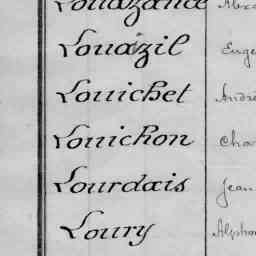 Louazance
Louazil Euge
Louichet André
Louichon Cha
Lourdais Jean
Loury Alpho